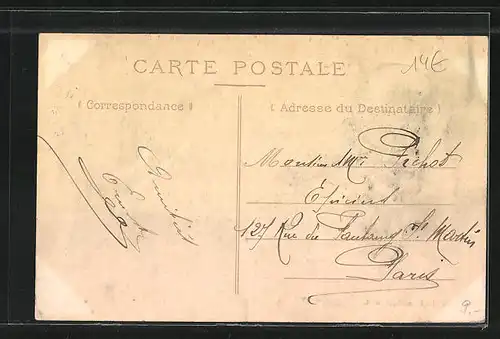 CARTE POSTALE
14€
( Correspondance )
( Adresse du Destinataire )
Amitiés
Monsieur Pichot
Épicier
127 Rue du Faubourg St Martin
Paris
9.-